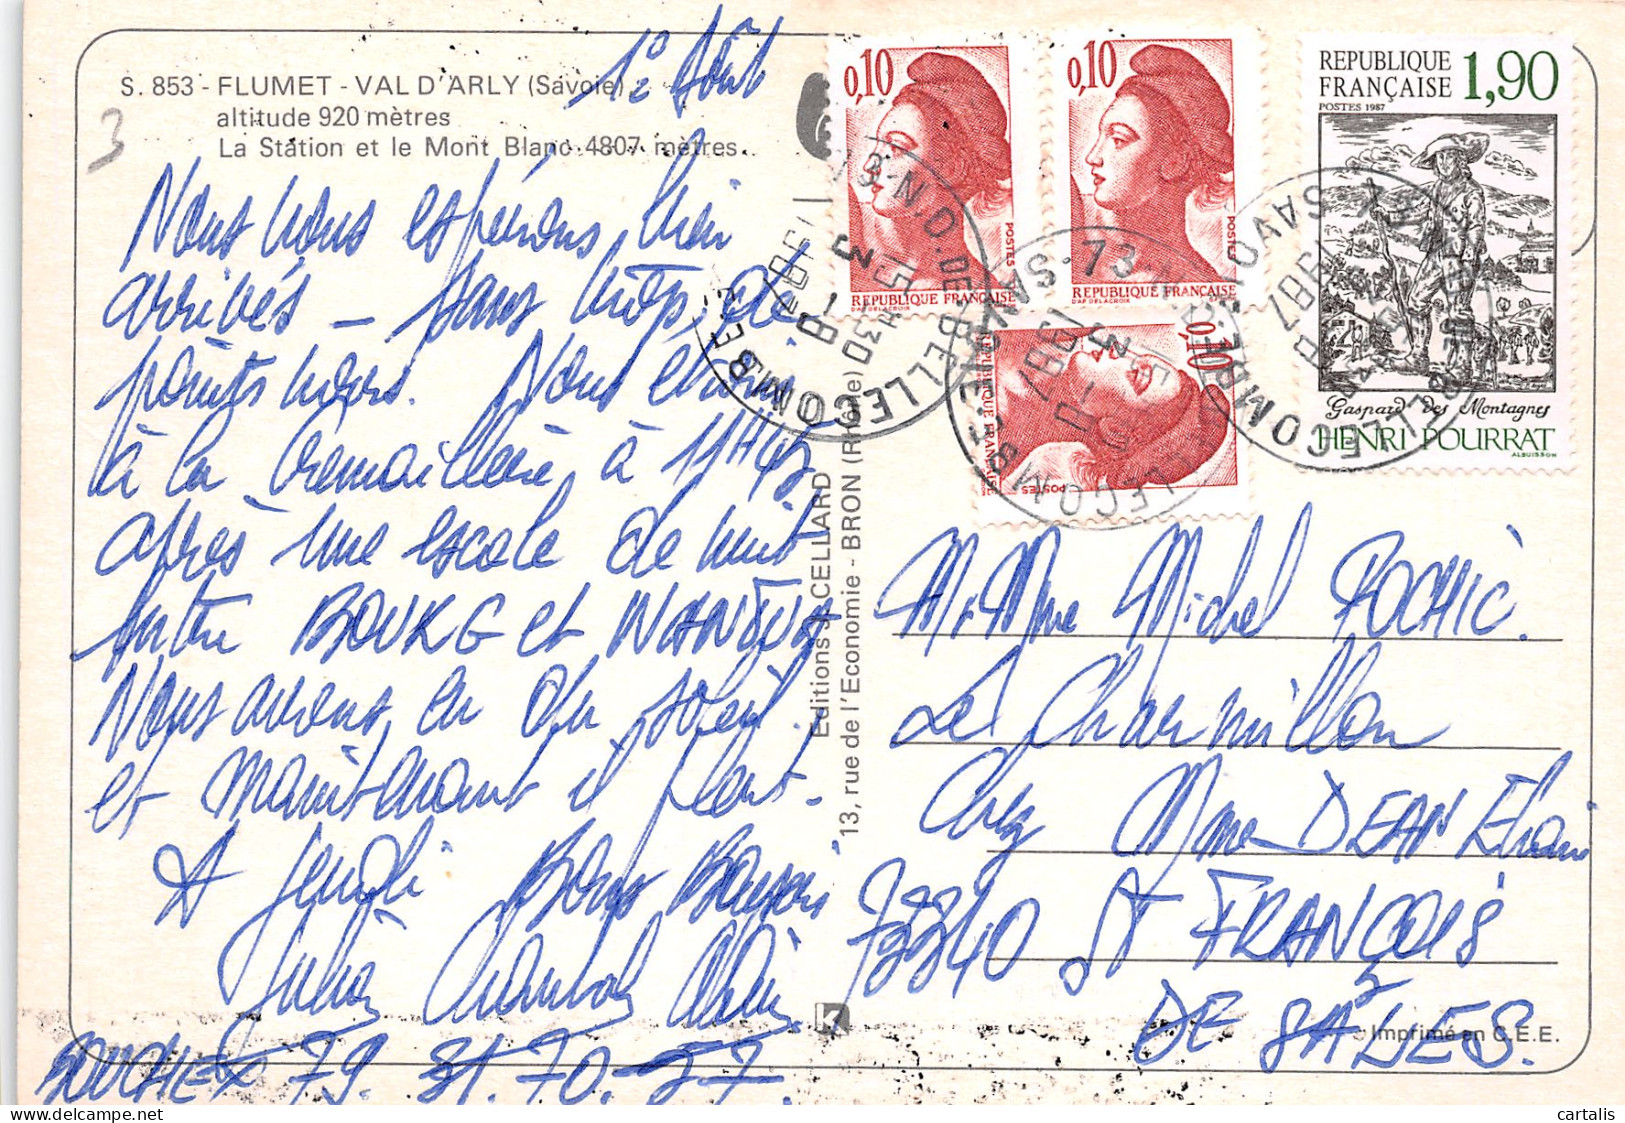 S. 853 - FLUMET - VAL D'ARLY (Savoie)
altitude 920 mètres
La Station et le Mont Blanc 4807 mètres.
3
1° Août
Nous vous espérons bien
arrivés - sans trop de
points noirs. Nous étions
à la Cremaillère à 11H45
après une escale de nuit
entre BOURG et NANTUA
Nous avons eu du soleil
et maintenant il pleut.
A jeudi Bons Baisers
Chantal Alain
79. 31. 70. 57
Editions J. CELLARD
13, rue de l'Economie - BRON (Rhône)
0,10
POSTES
REPUBLIQUE FRANÇAISE
D'AP DELACROIX
0,10
POSTES
REPUBLIQUE FRANÇAISE
D'AP DELACROIX
0,10
POSTES
REPUBLIQUE FRANÇAISE
REPUBLIQUE
FRANÇAISE 1,90
POSTES 1987
Gaspard des Montagnes
HENRI POURRAT
ALBUISSON
73-N.D. DE BELLECOMBE
15 H 30
3 - 8
1987
SAVOIE
M. Mme Michel POCHIC.
Le Charmillon
Chez Mme DEAN
73340 St FRANÇOIS
DE SALES.
K
Imprimé en C.E.E.
cartalis